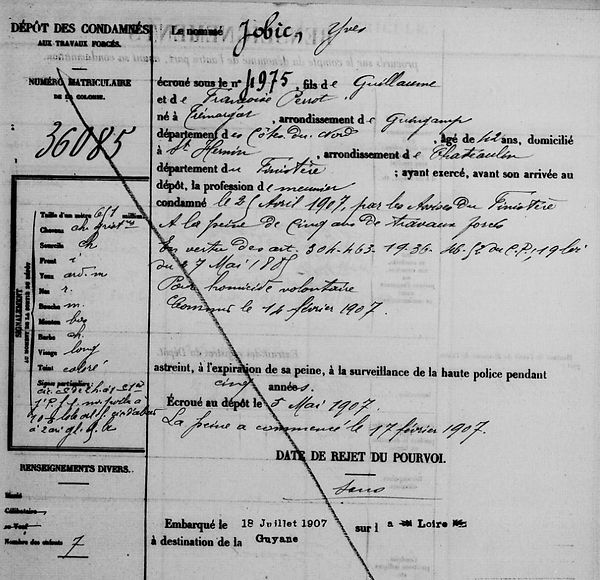 DÉPÔT DES CONDAMNÉS
AUX TRAVAUX FORCÉS.
NUMÉRO MATRICULAIRE
DE LA COLONIE.
36085
SIGNALEMENT
AU MOMENT DE LA SORTIE DU DÉPÔT
Taille d'un mètre 671 millim
Cheveux ch.
Sourcils ch
Front i
Yeux ard. m
Nez r.
Bouche m.
Menton
Barbe ch
Visage long
Teint coloré
Signes particuliers
RENSEIGNEMENTS DIVERS.
Marié
Célibataire
ou Veuf
Nombre des enfants 7
Le nommé Jobic, Yves
écroué sous le n° 4975, fils de Guillaume
et de Françoise Perrot
né à Trémargat, arrondissement de Guingamp
département des Côtes du Nord, âgé de 42 ans, domicilié
à St Hernin, arrondissement de Chateaulin
département du Finistère ; ayant exercé, avant son arrivée au
dépôt, la profession de meunier
condamné le 25 Avril 1907, par les Assises du Finistère
A la peine de Cinq ans de travaux forcés
En vertu des art. 304-463-19-36-46-§2 du C.P.; 19 loi
du 27 Mai 1885
Pour homicide volontaire
Commis le 14 février 1907.
astreint, à l'expiration de sa peine, à la surveillance de la haute police pendant
cinq années.
Écroué au dépôt le 5 Mai 1907.
La peine a commencé le 17 février 1907.
DATE DE REJET DU POURVOI.
sans
Embarqué le 18 Juillet 1907 sur l a Loire
à destination de la Guyane